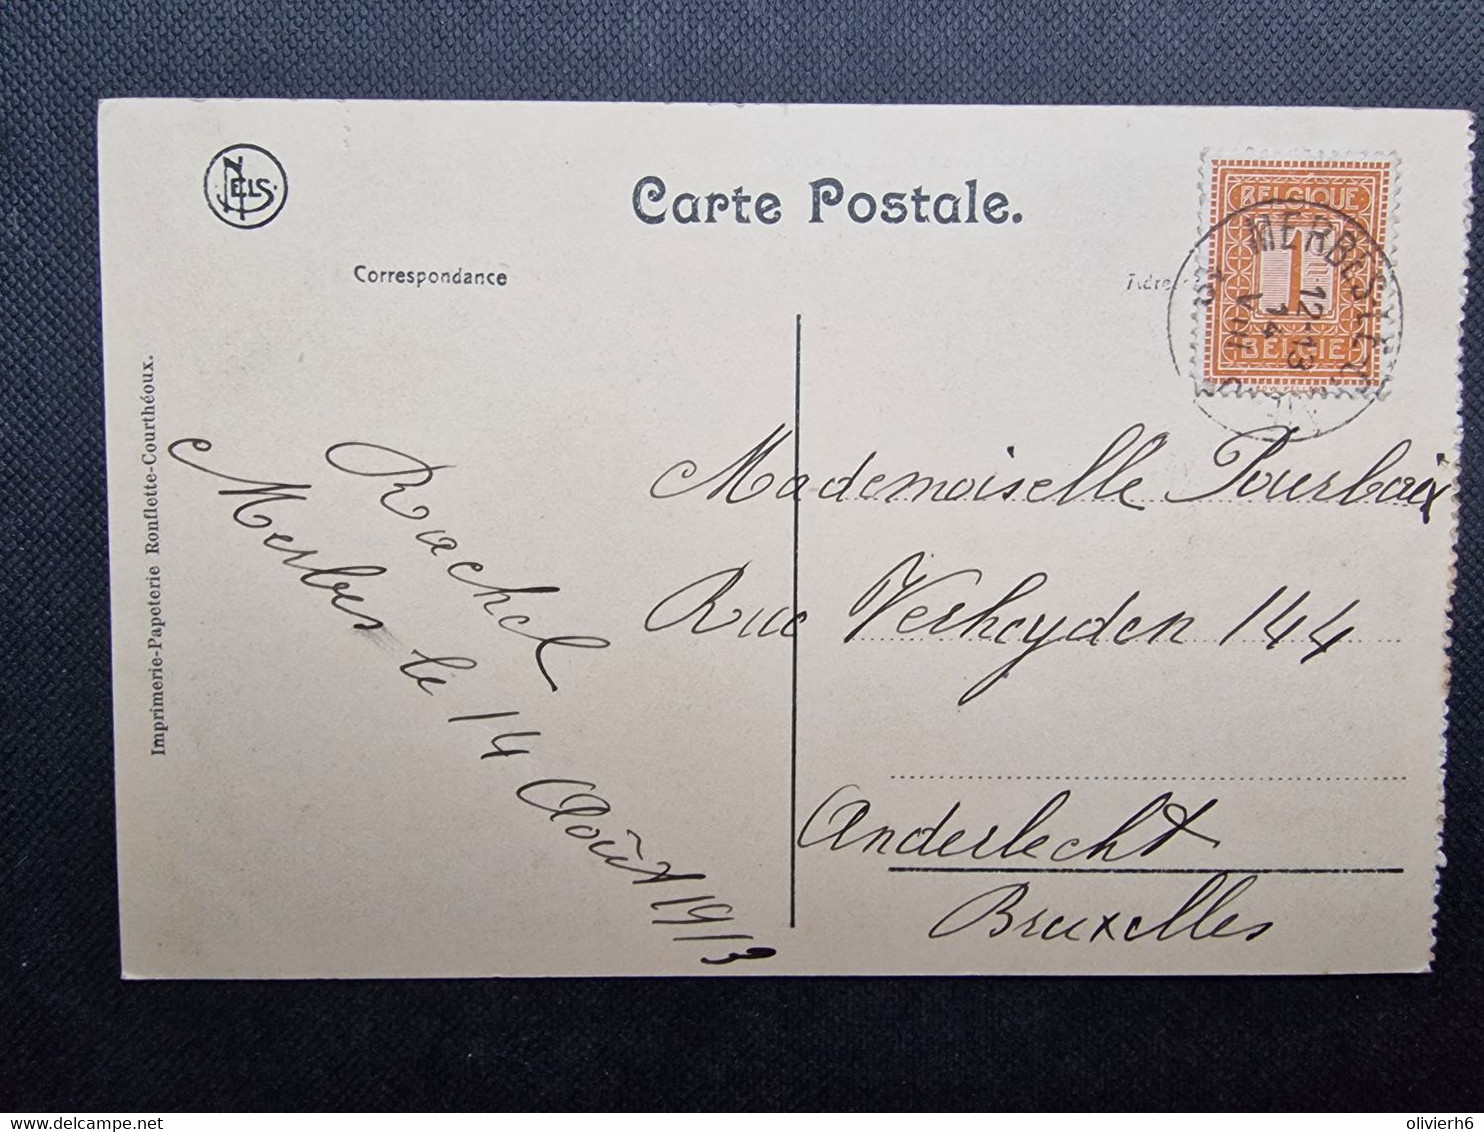 NELS
Carte Postale.
Correspondance
BELGIQUE
1
BELGIE
MERBES
12-13
14
VIII
Imprimerie-Papeterie Ronflette-Courthéoux.
Rachel
Merbes le 14 Août 1913
Mademoiselle Pourbaix
Rue Verheyden 144
Anderlecht
Bruxelles
delcampe.net
olivierh6